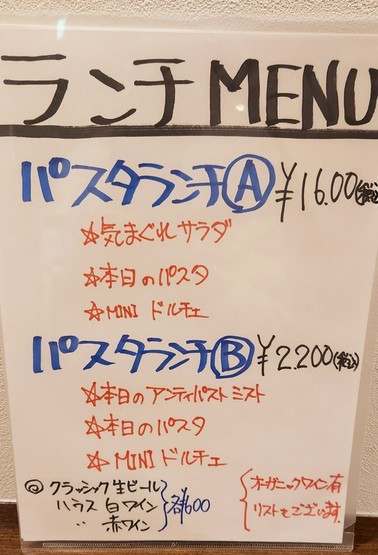 ランチMENU
パスタランチⒶ ¥16.00(税込)
☆気まぐれサラダ
☆本日のパスタ
☆MINI ドルチェ
パスタランチⒷ ¥2.200(税込)
☆本日のアンティパストミスト
☆本日のパスタ
☆MINI ドルチェ
◎クラッシック生ビール
ハウス 白ワイン
〃 赤ワイン
各¥600
オーガニックワイン有
リストもございます